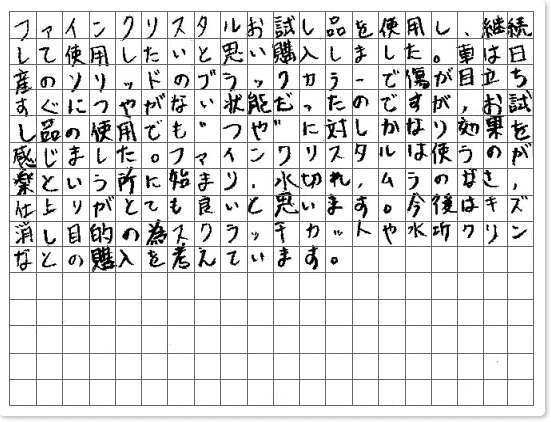 ファインクリスタルお試し品を使用し、継続
して使用したいと思い購入しました。車は日
産のソリッドのブラックカラーで傷が目立ち
すぐにつやがない状能だったのですが、お試
し品の使用でも“つや”に対しかなり効果を
感じました。ファインクリスタルは使うのが
楽という所に始まり、水切れ、ムラのなさ、
仕上りがとても良いと思います。今後はキズ
消し目的の為スクラッチカットや水功クリン
などの購入を考えています。